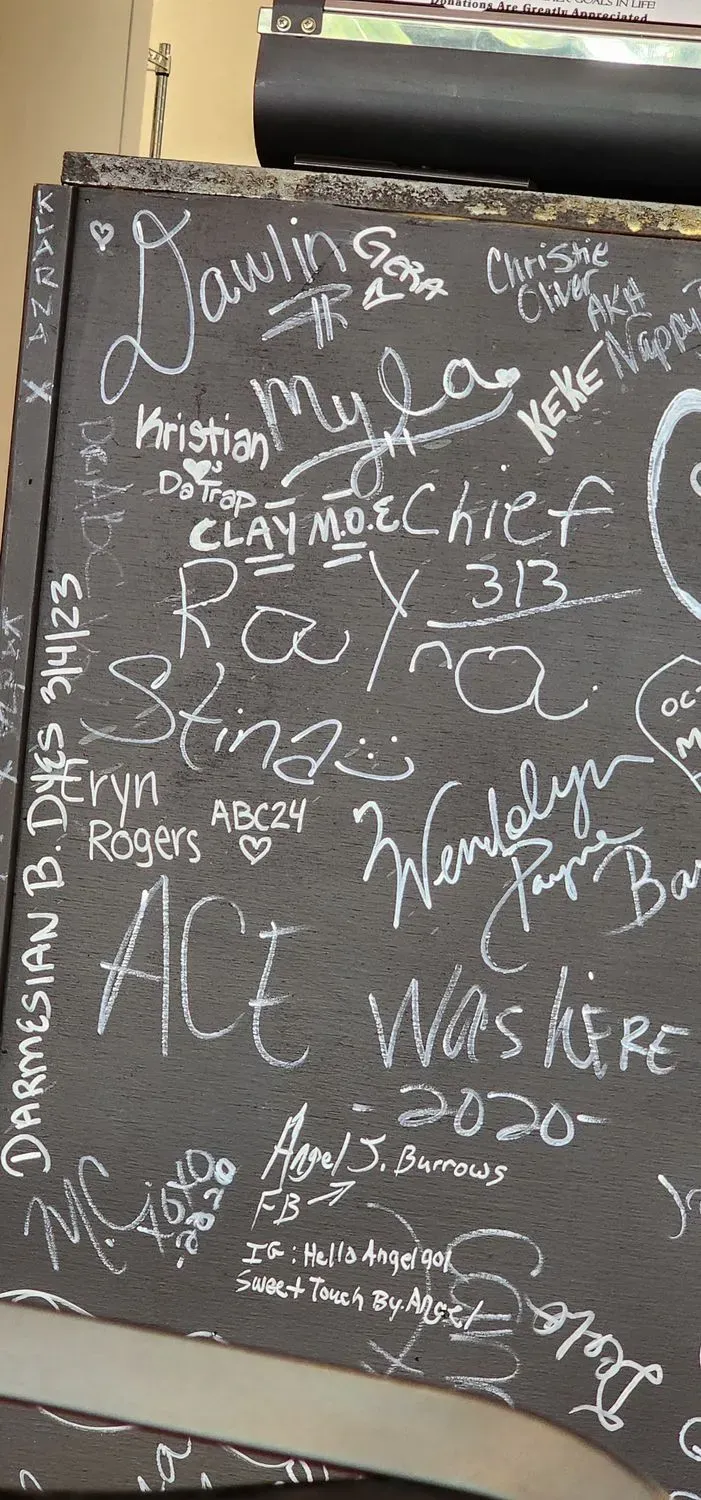 GOALS IN LIFE!
Donations Are Greatly Appreciated
KIARNA X
Dawlin
GERA
Christie
Oliver
AKA
Nappy
Myla
KEKE
Kristian
Da Trap
CLAY M.O.E
Chief
313
RaYna
Stina
DARMESIAN B. DYES 3/4/23
Eryn
Rogers
ABC24
Wendolyn
Payne
Bar
ACE was hERE
-2020-
Angel J. Burrows
FB
IG: Hello Angel901
Sweet Touch By. Angel
M.C.
2020